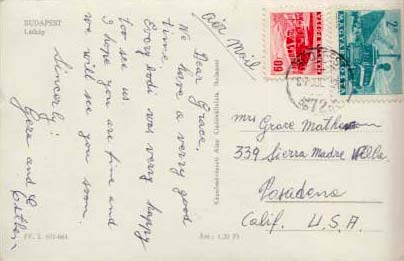 BUDAPEST
Látkép
Air Mail
Dear Grace,
We have a verry good
time.
Every bodi vas verry happy
too see us
I hope you are fine and
we will see you soon.
Sincerly:
Geza and
Képzőművészeti Alap Kiadóvállalata, Budapest
60
MAGYAR POSTA
2
MAGYAR POSTA
Mrs
Grace
339 Sierra Madre Villa
Pasadena
Calif. U.S.A.
Ára: 1,20 Ft